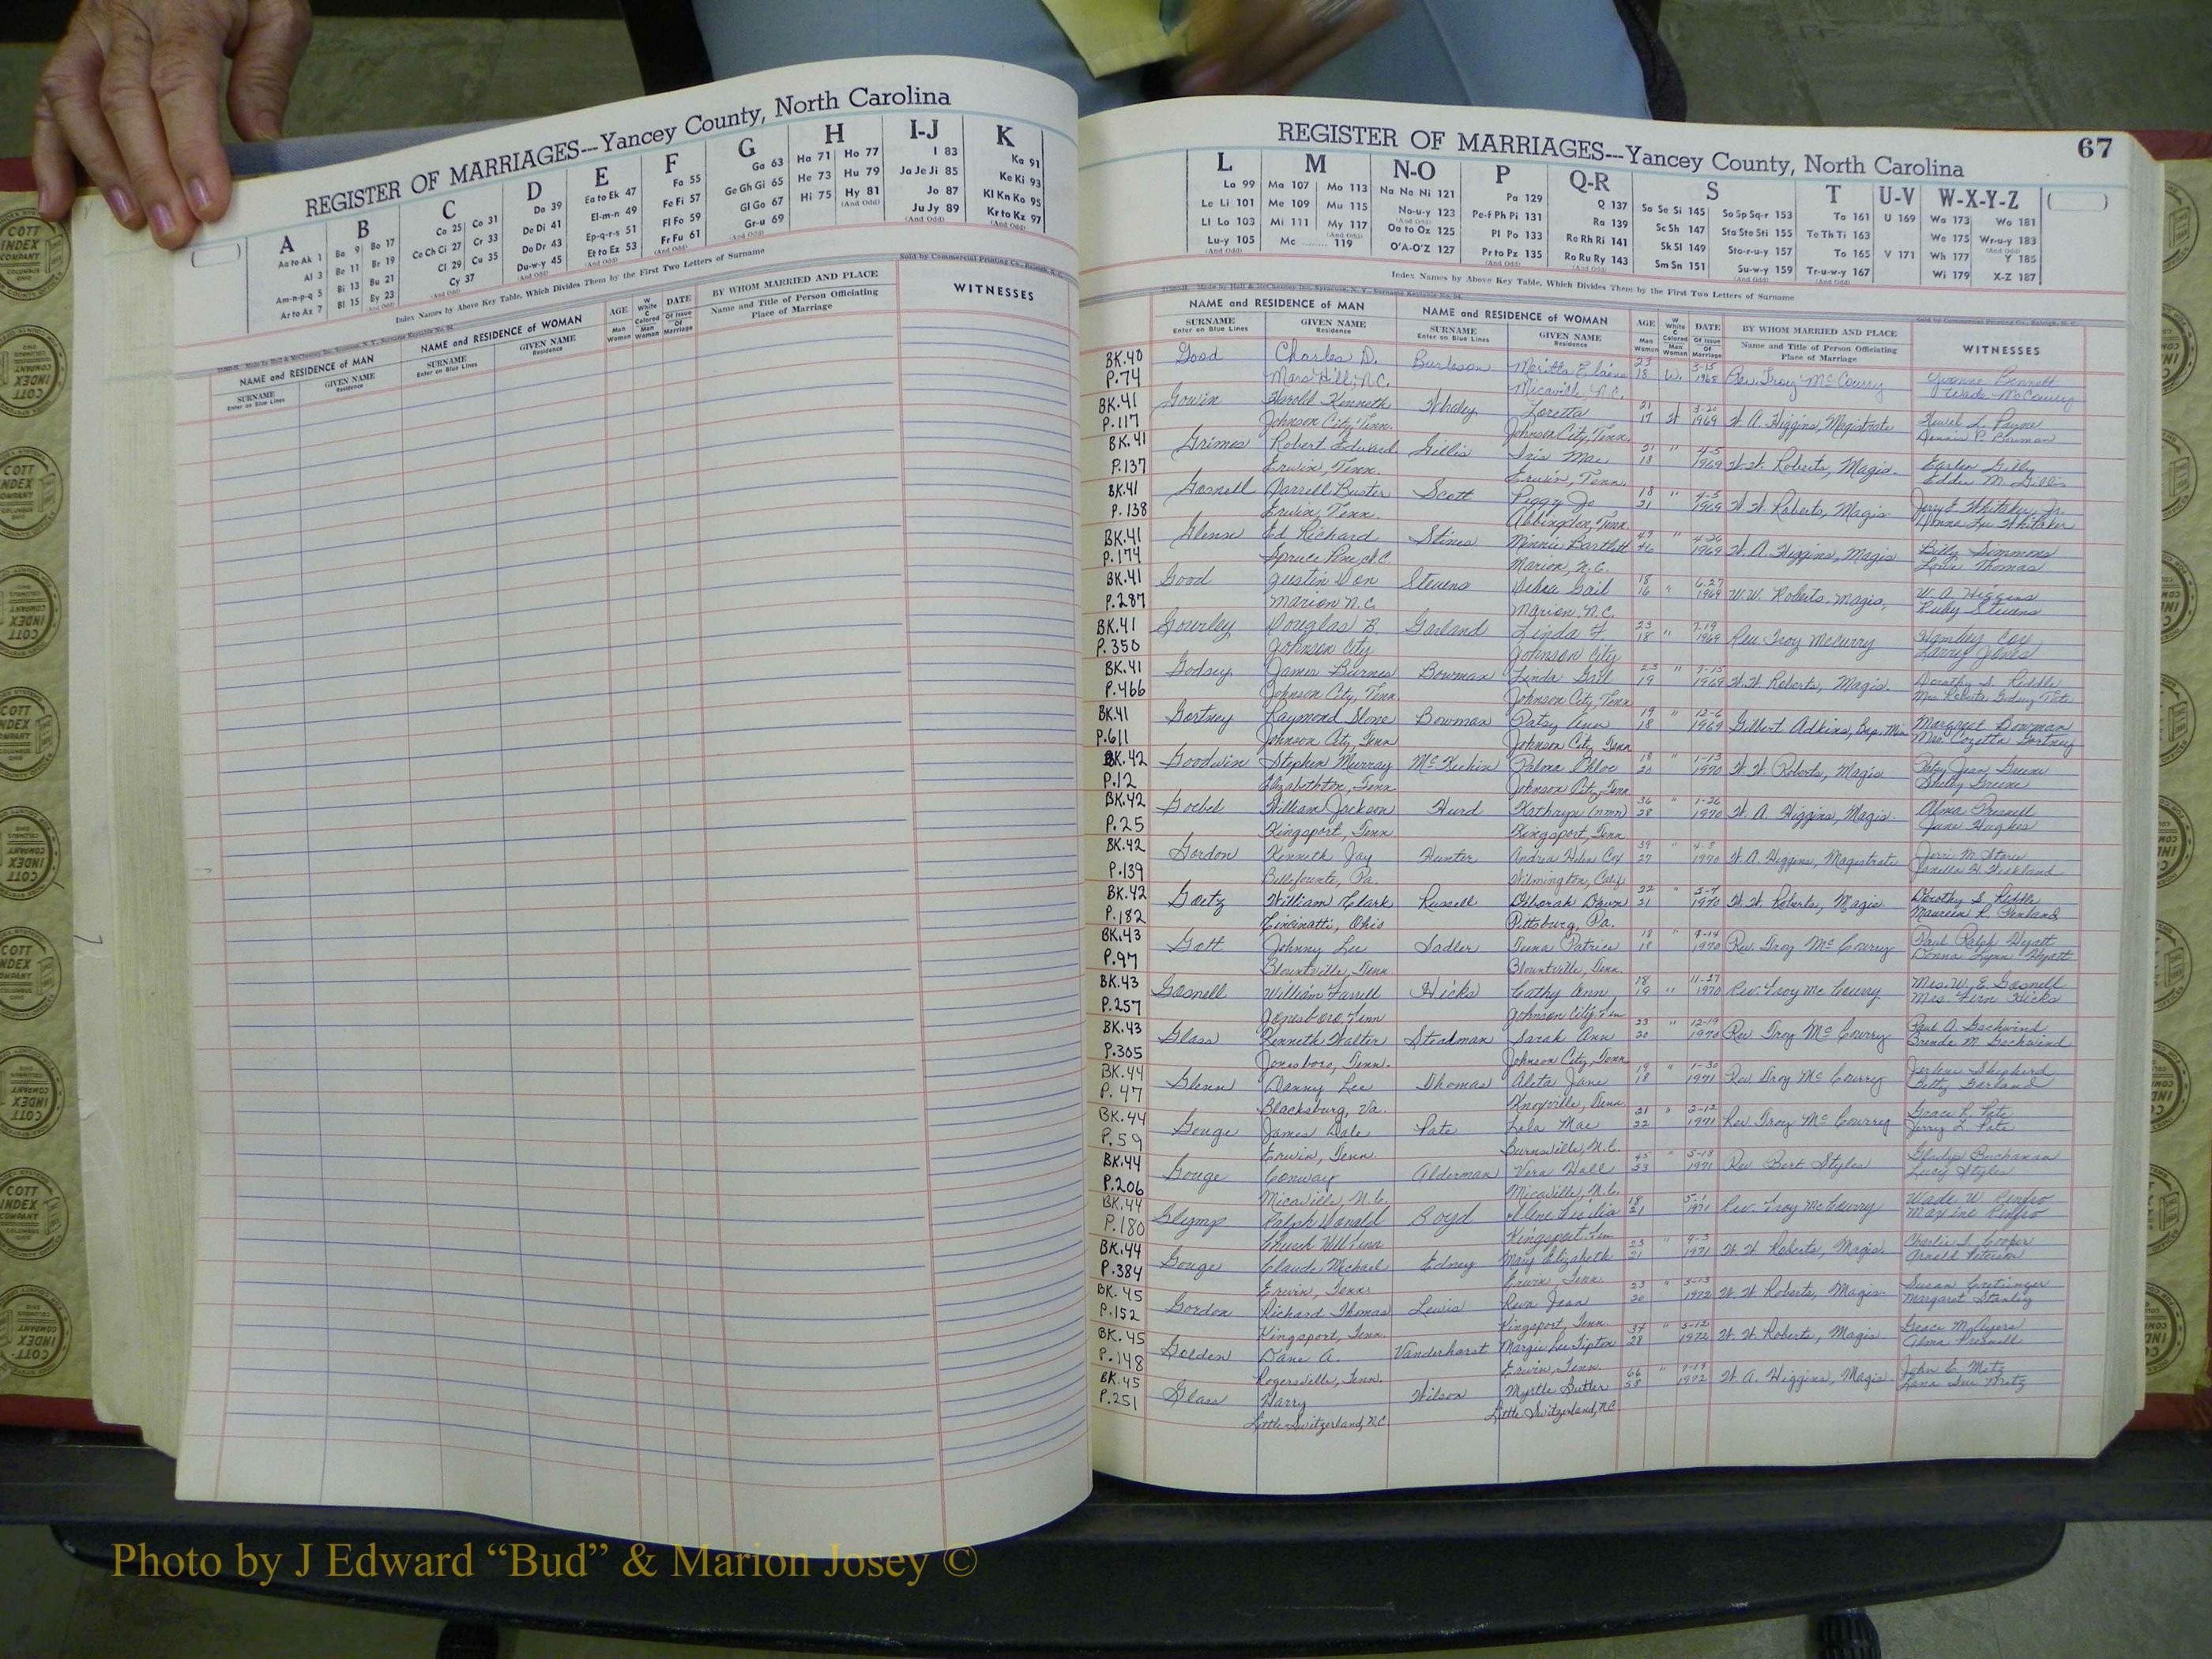 REGISTER OF MARRIAGES---Yancey County, North Carolina
A B C D E F G H I-J K
Aa to Ak 1
Al 3
Am-n-p-q 5
Ar to Az 7
Ba 9 Bo 17
Be 11 Br 19
Bi 13 Bu 21
Bl 15 By 23
Ca 25 Co 31
Ce Ch Ci 27 Cr 33
Cl 29 Cu 35
Cy 37
Da 39
De Di 41
Do Dr 43
Du-w-y 45
Ea to Ek 47
El-m-n 49
Ep-q-r-s 51
Et to Ez 53
Fa 55
Fe Fi 57
Fl Fo 59
Fr Fu 61
Ga 63
Ge Gh Gi 65
Gl Go 67
Gr-u 69
Ha 71 Ho 77
He 73 Hu 79
Hi 75 Hy 81
I 83
Ja Je Ji 85
Jo 87
Ju Jy 89
Ka 91
Ke Ki 93
Kl Kn Ko 95
Kr to Kz 97
Index Names by Above Key Table, Which Divides Them by the First Two Letters of Surname
Sold by Commercial Printing Co., Raleigh, N. C.
NAME and RESIDENCE of MAN
SURNAME
Enter on Blue Lines
GIVEN NAME
Residence
NAME and RESIDENCE of WOMAN
SURNAME
Enter on Blue Lines
GIVEN NAME
Residence
AGE
Man
Woman
W White C Colored
Man
Woman
DATE
Of Issue
Of Marriage
BY WHOM MARRIED AND PLACE
Name and Title of Person Officiating
Place of Marriage
WITNESSES
REGISTER OF MARRIAGES---Yancey County, North Carolina
67
L M N-O P Q-R S T U-V W-X-Y-Z
La 99
Le Li 101
Ll Lo 103
Lu-y 105
(And Odd)
Ma 107 Mo 113
Me 109 Mu 115
Mi 111 My 117
Mc 119
Na Ne Ni 121
No-u-y 123
Oa to Oz 125
O'A-O'Z 127
Pa 129
Pe-f Ph Pi 131
Pl Po 133
Pr to Pz 135
Q 137
Ra 139
Re Rh Ri 141
Ro Ru Ry 143
Sa Se Si 145 So Sp Sq-r 153
Sc Sh 147 Sta Ste Sti 155
Sk Sl 149 Sto-r-u-y 157
Sm Sn 151 Su-w-y 159
Ta 161
Te Th Ti 163
To 165
Tr-u-w-y 167
U 169
V 171
Wa 173 Wo 181
We 175 Wr-u-y 183
Wh 177 Y 185
Wi 179 X-Z 187
Index Names by Above Key Table, Which Divides Them by the First Two Letters of Surname
NAME and RESIDENCE of MAN
SURNAME
Enter on Blue Lines
GIVEN NAME
Residence
NAME and RESIDENCE of WOMAN
SURNAME
Enter on Blue Lines
GIVEN NAME
Residence
AGE
Man
Woman
W White C Colored
Man
Woman
DATE
Of Issue
Of Marriage
BY WHOM MARRIED AND PLACE
Name and Title of Person Officiating
Place of Marriage
WITNESSES
BK.40 Good Charles D. Burleson Elaine 23 3-15
P.74 Mars Hill, N.C. Micaville, N.C. 18 W. Rev. Troy McCourry Yvonne Bennett
Wade McCourry
BK.41 Gowin Harold Kenneth Whaley Loretta 21 3-20
P.117 Johnson City, Tenn. Johnson City, Tenn. 17 W 1969 W. A. Higgins, Magistrate Payne
Dennis P. Bowman
BK.41 Grimes Robert Edward Gillis Iris Mae 21 " 4-5
P.137 Erwin, Tenn. Erwin, Tenn. 18 1969 W. W. Roberts, Magis.
Eddie M. Gillis
BK.41 Gosnell Darrell Buster Scott Peggy Jo 18 " 4-5
P.138 Erwin, Tenn. Abbingdon, Tenn. 21 1969 W. W. Roberts, Magis. Jerry E. Whitaker, Jr.
Donna Lee Whitaker
BK.41 Ed Richard Stines Minnie Bartlett 46 " 4-26
P.174 Spruce Pine, N.C. Marion, N.C. 1969 W. A. Higgins, Magis. Billy Simmons
Thomas
BK.41 Good Justin Don Stevens Debra Gail 18 6-27
P.287 Marion N.C. Marion, N.C. 16 " 1969 W.W. Roberts, Magis. W. A. Higgins
Ruby Stevens
BK.41 Gourley Douglas B. Garland Linda F. 23 7-19
P.350 Johnson City Johnson City 18 " 1969 Rev Troy McCurry Cox
Larry Jones
BK.41 Godsey James Barnes Bowman Linda Gail 23 "
P.466 Johnson City, Tenn. Johnson City, Tenn 19 1969 W. W. Roberts, Magis. Dorothy S. Riddle
BK.41 Gortney Raymond Bowman Patsy Ann 19 " 12-6
P.611 Johnson City, Tenn Johnson City, Tenn 18 1969 Gilbert Adkins, Bap. Min. Margaret Bowman
Mrs. Cozetta Gortney
BK.42 Goodwin Stephen Murray Chloe 18 " 1-13
P.12 Elizabethton, Tenn Johnson City, Tenn 20 1970 W. W. Roberts, Magis Patsy Jean Greene
Shelby Greene
BK.42 Goebel William Jackson Hurd Kathryn (nmn) 36 " 1-26
P.25 Kingsport, Tenn Kingsport, Tenn 28 1970 W. A. Higgins, Magis. Alma Presnell
June Hughes
BK.42 Gordon Kenneth Jay Hunter Andrea Helen Cox 39 " 4-8
P.139 Bellefounte, Pa. Wilmington, Calif. 27 1970 W. A. Higgins, Magistrate Jerri M.
BK.42 Goetz William Clark Russell Deborah Dawn 22 " 5-7
P.182 Cincinatti, Ohio Pittsburg, Pa. 21 1970 W. W. Roberts, Magis. Dorothy S. Riddle
Maureen R. Penland
BK.43 Gott Johnny Lee Sadler Patrice 18 " 9-14
P.97 Blountville, Tenn Blountville, Tenn. 18 1970 Rev. Troy McCourry Paul Ralph Hyatt
Donna Lynn Hyatt
BK.43 Gosnell William Farrell Hicks Cathy Ann 18 11-27
P.257 Jonesboro, Tenn Johnson City, Tenn 19 " 1970 Rev. Troy McCourry Mrs. W. E. Gosnell
Mrs. Fern Hicks
BK.43 Glass Kenneth Walter Steadman Sarah Ann 23 " 12-19
P.305 Jonesboro, Tenn. Johnson City, Tenn 20 1970 Rev Troy McCourry Paul A. Gschwind
Brenda M. Gschwind
BK.44 Glenn Danny Lee Thomas Aleta Jane 19 " 1-30
P.47 Blacksburg, Va. Knoxville, Tenn. 18 1971 Rev Troy McCourry Jerlene Shepherd
Betty Garland
BK.44 Gouge James Dale Pate Lela Mae 21 " 2-12
P.59 Erwin, Tenn. Burnsville, N.C. 22 1971 Rev Troy McCourry Grace R. Pate
Jerry L. Pate
BK.44 Gouge Conway Alderman Vera Hall 45 " 5-18
P.206 Micaville, N.C. Micaville, N.C. 53 1971 Rev. Bert Styles Gladys Buchanan
Lucy Styles
BK.44 Glymp Ralph Donald Boyd 18 5-1
P.180 Church Hill Tenn Kingsport, Tenn 21 1971 Rev. Troy McCourry Wade W. Renfro
Maxine Renfro
BK.44 Gouge Claude Michael Edney Mary Elizabeth 23 " 9-3
P.384 Erwin, Tenn. Erwin, Tenn. 21 1971 W. W. Roberts, Magis. Charlie L. Cooper
Arnold Peterson
BK.45 Gordon Richard Thomas Lewis Reva Jean 23 " 5-13
P.152 Kingsport, Tenn. Kingsport, Tenn. 20 1972 W. W. Roberts, Magis. Susan
Margaret Stanley
BK.45 Golden Dane A. Vanderhorst Margie Lee Tipton 37 " 5-12
P.148 Rogersville, Tenn. Erwin, Tenn. 28 1972 W. W. Roberts, Magis. Grace M. Ayers
Alma Presnell
BK.45 Glass Harry Wilson Myrtle Butler 66 "
P.251 Little Switzerland, N.C. Little Switzerland, N.C. 58 1972 W. A. Higgins, Magis John E. Metz
Metz
Photo by J Edward “Bud” & Marion Josey ©